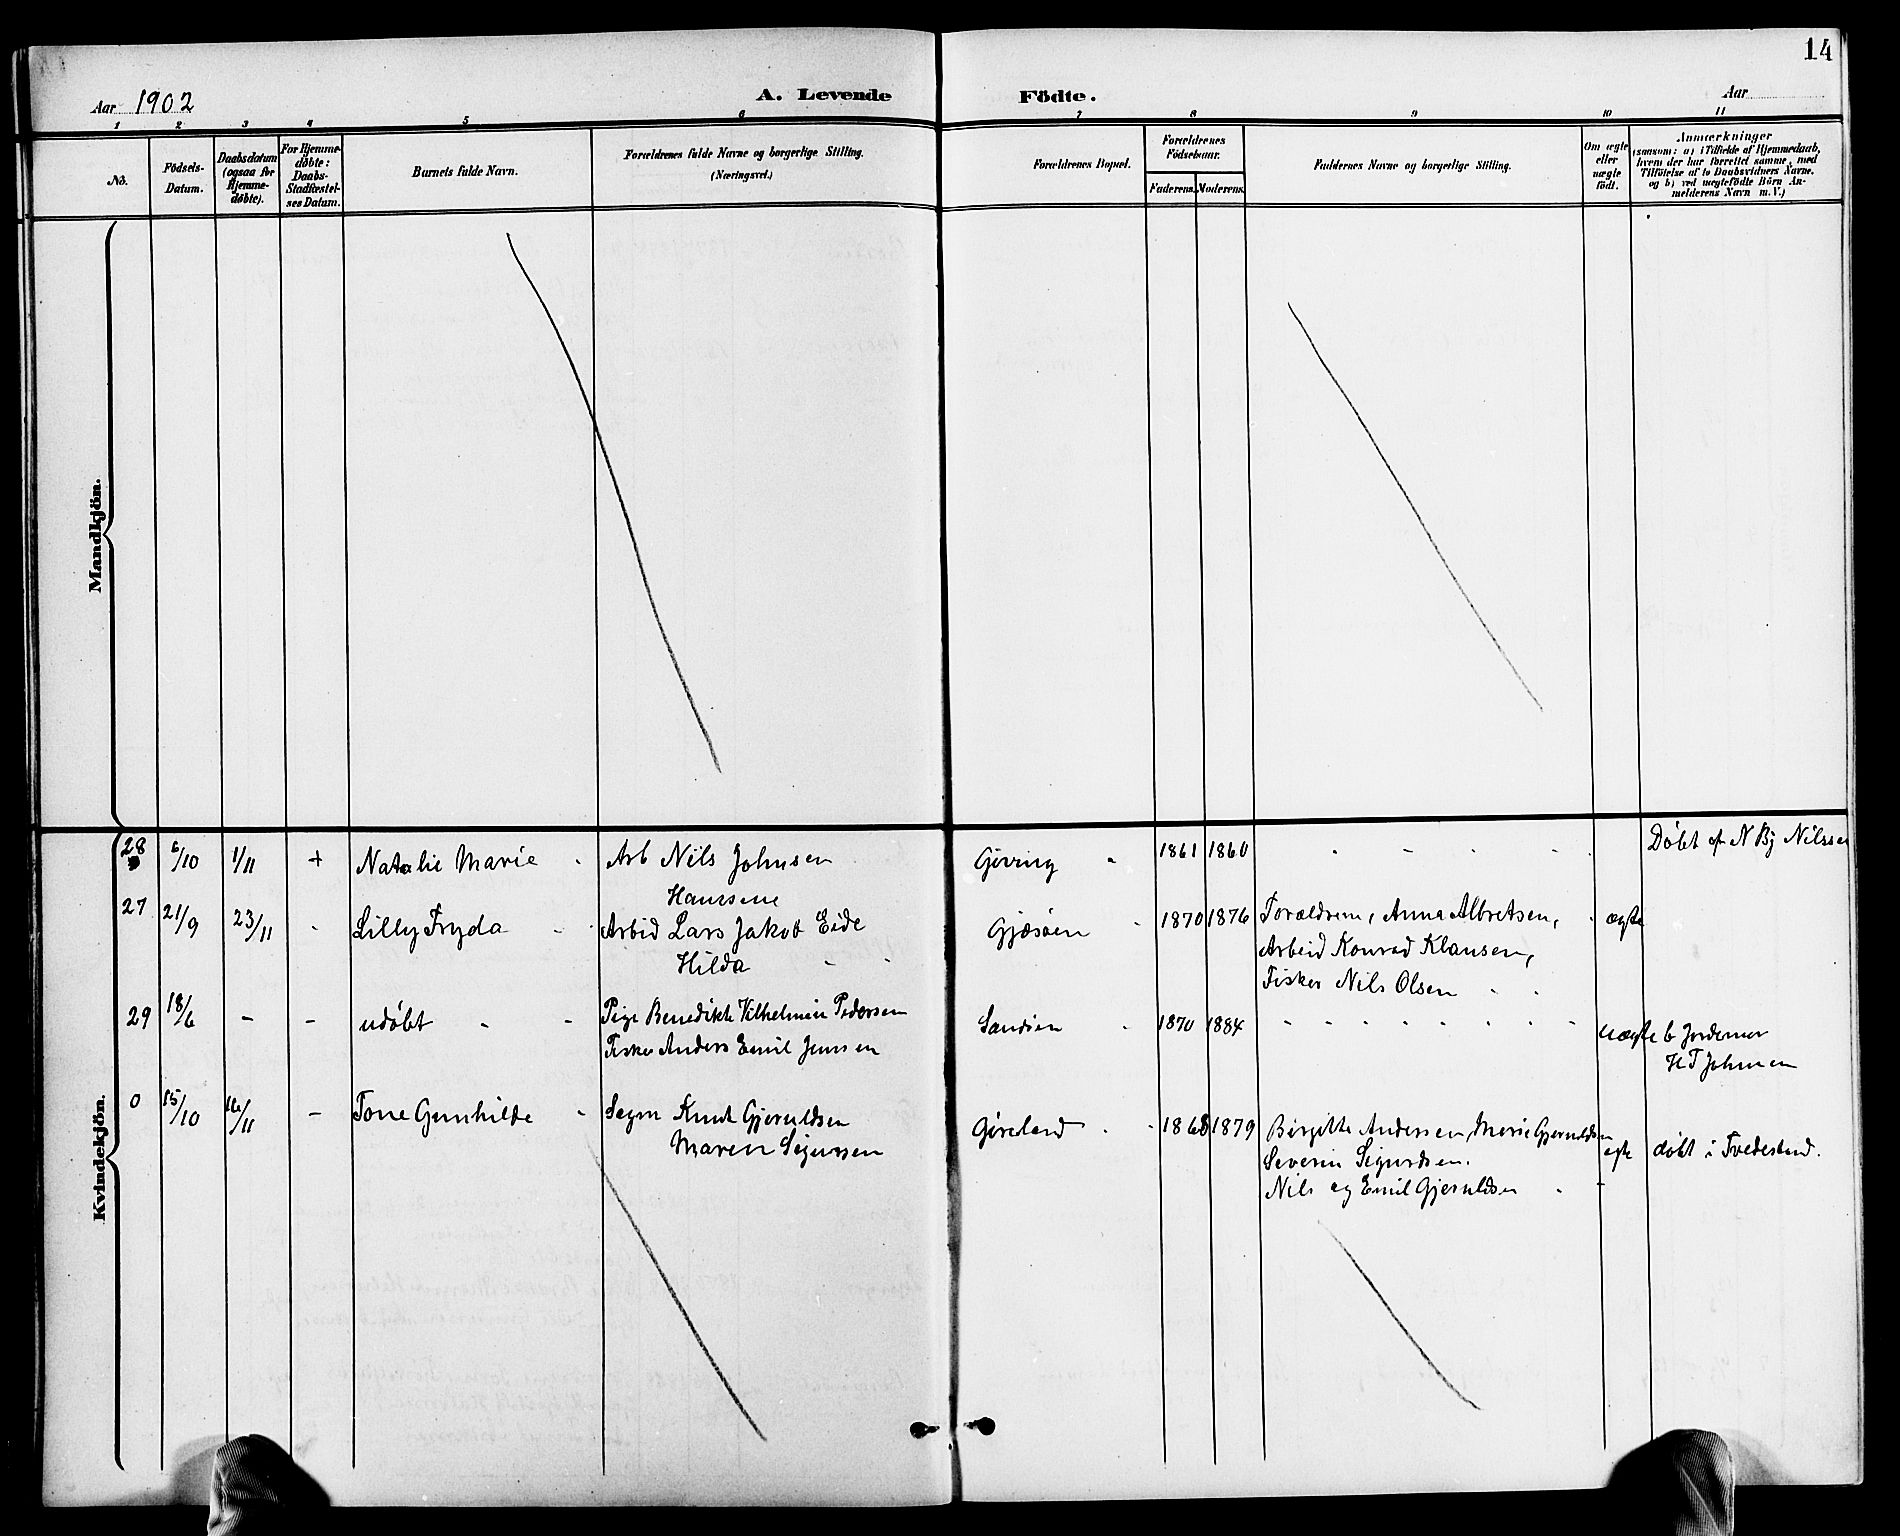 14
Aar 1902 A. Levende Födte. Aar
1 2 3 4 5 6 7 8 9 10 11
No.
Födsels-Datum.
Daabsdatum (ogsaa for Hjemme-døbte).
For Hjemme-døbte: Daabs-Stadfæstel-ses Datum.
Barnets fulde Navn.
Forældrenes fulde Navne og borgerlige Stilling.
(Næringsvei.)
Forældrenes Bopæl.
Forældrenes Födselsaar.
Faderens. Moderens.
Faddernes Navne og borgerlige Stilling.
Om ægte eller uægte født.
Anmærkninger
(saasom: a) i Tilfælde af Hjemmedaab,
hvem der har forrettet samme, med
Tilföielse af to Daabsvidners Navne.
og b) ved uægtefödte Börn An-
melderens Navn m.V.)
Mandkjön.
Kvindekjön.
28 6/10 1/11 + Natalie Marie Arb Nils Johnsen Gjeving 1861 1860 Døbt af N Bj Nilssen
Hanssine
27 21/9 23/11 Lilly Fryda Arbid Lars Jakob Eide Gjæsøen 1870 1876 Forældrene, Anna Albretsen, ægte
Hilda Arbeid Konrad Klausen,
Fisker Nils Olsen
29 18/6 - - udøbt Pige Benedikte Vilhelmine Pedersen Sandøen 1870 1884 uægte b Jordemor
Fisker Anders Emil Jensen H T Johnsen
0 15/10 16/11 - Tone Gunhilde Sagm Knut Gjeruldsen 1868 1879 Birgitte Andersen, Marie Gjeruldsen ægte døbt i Tvedestrand.
Maren Sigurssen Severin Sigurdsen.
Nils og Emil Gjeruldsen